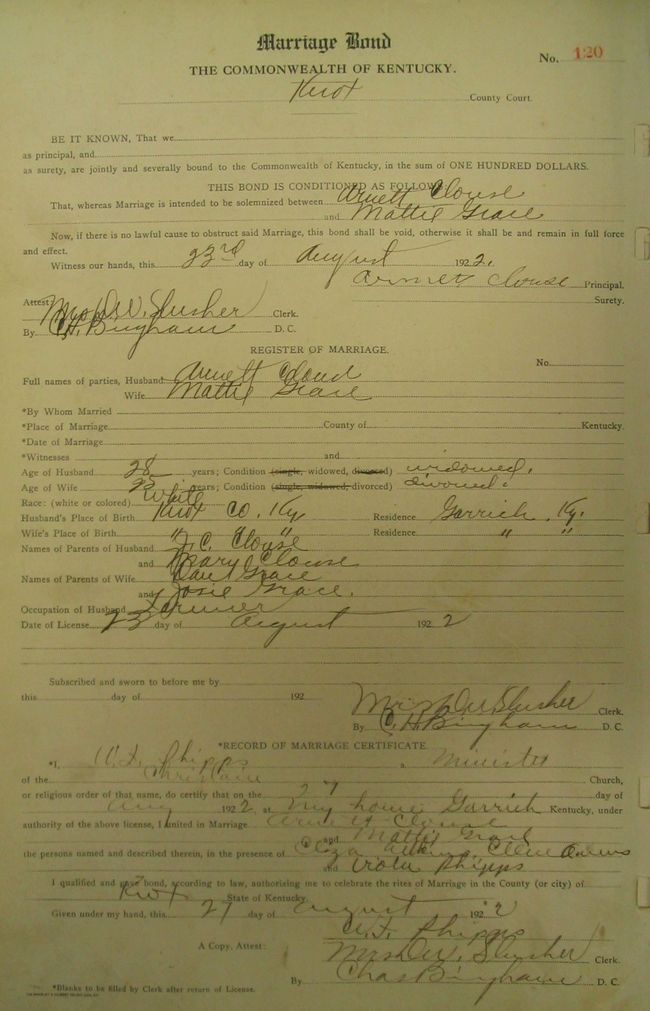 Marriage Bond
No. 120
THE COMMONWEALTH OF KENTUCKY.
Knox County Court.
BE IT KNOWN, That we
as principal, and
as surety, are jointly and severally bound to the Commonwealth of Kentucky, in the sum of ONE HUNDRED DOLLARS.
THIS BOND IS CONDITIONED AS FOLLOWS:
That, whereas Marriage is intended to be solemnized between Arnett Clouse
and Mattie Grace
Now, if there is no lawful cause to obstruct said Marriage, this bond shall be void, otherwise it shall be and remain in full force
and effect.
Witness our hands, this 23rd day of August 1922.
Arnett Clouse Principal.
Surety.
Attest: Mrs D. W. Slusher Clerk.
By C. H. Bingham D. C.
REGISTER OF MARRIAGE.
No.
Full names of parties, Husband Arnett Cloud
Wife Mattie Grace
*By Whom Married
*Place of Marriage County of Kentucky.
*Date of Marriage
*Witnesses and
Age of Husband 28 years; Condition (single, widowed, divorced) widowed.
Age of Wife 25 years; Condition (single, widowed, divorced) divorced.
Race: (white or colored) White
Husband's Place of Birth Knox Co. Ky Residence Garrich, Ky.
Wife's Place of Birth " " Residence " "
Names of Parents of Husband J. C. Clouse
and Mary Clouse
Names of Parents of Wife Grace
and Josie Grace.
Occupation of Husband Farmer
Date of License 23 day of August 1922
Subscribed and sworn to before me by
this day of 192
Mrs D W Slusher Clerk.
By C. H. Bingham D. C.
*RECORD OF MARRIAGE CERTIFICATE
*I, Phipps a Minister
of the Christain Church,
or religious order of that name, do certify that on the 27 day of
Aug 1922 at My home Garrich Kentucky, under
authority of the above license, I united in Marriage Arnett Clouse
and Mattie Grace
the persons named and described therein, in the presence of
and Phipps
I qualified and gave bond, according to law, authorizing me to celebrate the rites of Marriage in the County (or city) of
Knox State of Kentucky.
Given under my hand, this 27 day of August 1922
Phipps
A Copy, Attest: Mrs D. W. Slusher Clerk.
By Chas Bingham D. C.
*Blanks to be filled by Clerk after return of License.